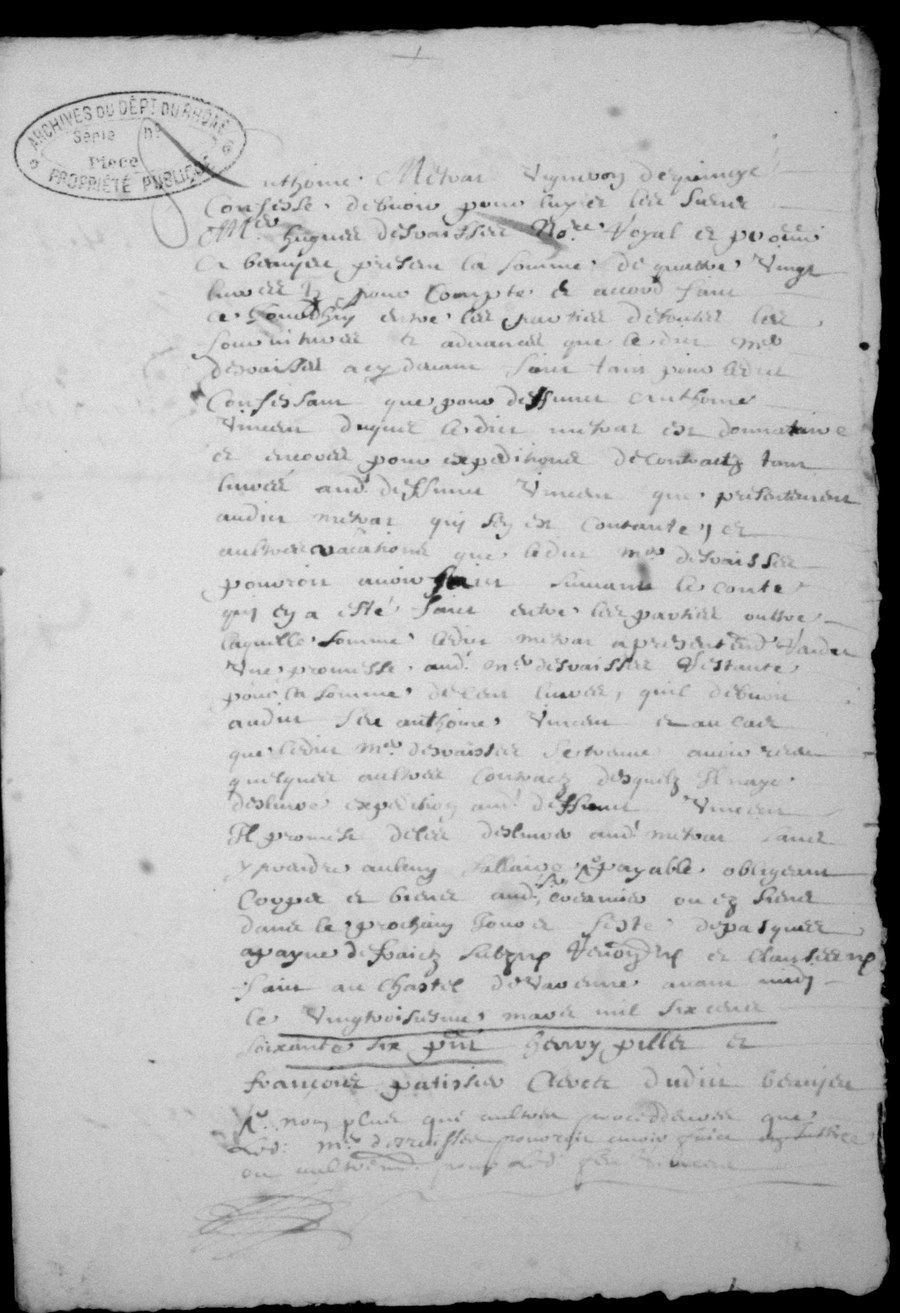 ARCHIVES DU DÉPT DU RHÔNE
Série n°
Piece
PROPRIÉTÉ PUBLIQUE
Anthoine Metrat Vigneron de quincye
Confesse debuoir pour luy et les siens
A Me hugues desvaisses No.re Royal et
a beaujeu present la somme de quattre Vingt
livres pour Compte et accord faict
ce Jourdhuy entre les parties de toutes les
fournitures et advances que ledit Me
desvaisses a cy devant faict tant pour ledit
Confessant que pour deffunct Anthoine
Vincent duquel ledit metrat est donnataire
et encores pour expeditions de contractz tant
livrés aud. deffunct Vincent que presentement
audit metrat qui sen est contanté, et
aultres vacations que ledit Me desvaisses
pouroit avoir faict suivant le conte
qui en a esté faict entre les parties oultre
laquelle somme ledit metrat a presentemt
Une promesse aud. Me desvaisses restante
pour la somme de cent livres, quil debvoit
audit feu anthoine Vincent et au cas
que ledit Me desvaisses se treuve avoir
quelques aultres contractz desquelz Il naye
deslivré expedition aud. deffunct Vincent
Il promest de les deslivrer aud. metrat sans
prendre aulcung sallaire payable obligeant
Corps et biens
dans le prochain Jour et feste de pasques
a payne de fraictz et clauses
faict au Chastel de Varenne avant midy
le Vingtroisiesme mars mil six cens
soixante six pnt henry piller et
françois patissier clercs dudit beaujeu
non plus que aultres proceddures que
Led. Me desvaisses pouroit avoir faict en Justice
ou aultremt pour Led. feu Vincent